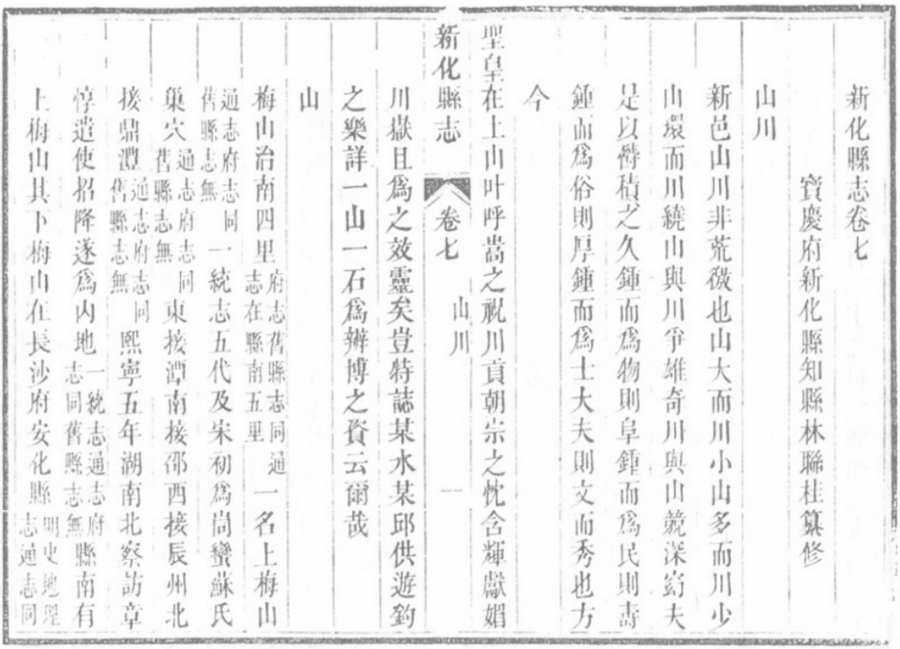 新化縣志卷七
寶慶府新化縣知縣林聯桂纂修
山川
新邑山川非荒僻也山大而川小山多而川少
山環而川繞山與川爭雄奇川與山競深窈夫
是以欝積之久鍾而爲物則阜鍾而爲民則壽
鍾而爲俗則厚鍾而爲士大夫則文而秀也方
今
聖皇在上山叶呼嵩之祝川貢朝宗之忱含輝獻媚
新化縣志 卷七 山川 一
川嶽且爲之效靈矣豈特誌某水某邱供遊釣
之樂詳一山一石爲辨博之資云爾哉
山
梅山治南四里府志舊縣志同通志在縣南五里一名上梅山
通志府志同舊縣志無一統志五代及宋初爲峝蠻蘇氏
巢穴通志府志同舊縣志無東接潭南接邵西接辰州北
接鼎澧通志府志同舊縣志無熙寧五年湖南北察訪章
惇遣使招降遂爲内地一統志通志府志同舊縣志無縣南有
上梅山其下梅山在長沙府安化縣明史地理志通志同